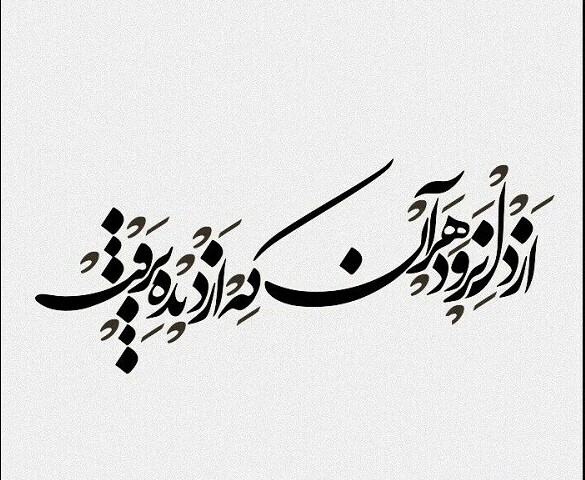 از دل نرود هر آن که از دیده برفت